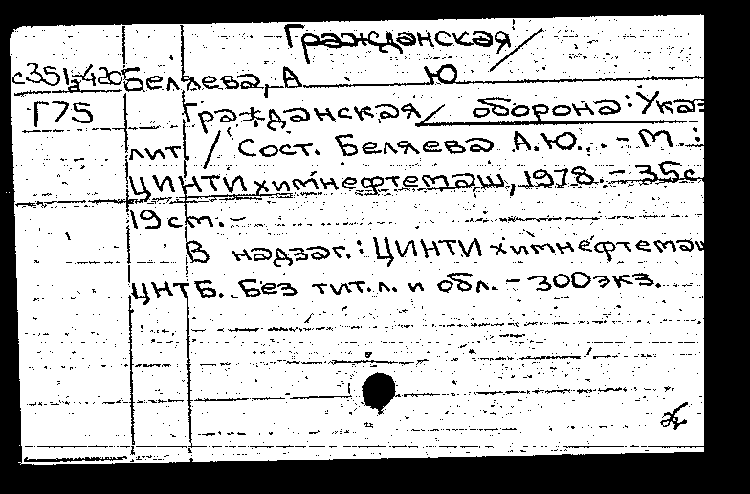 Гражданская/
с351з420 Беляева, А Ю
Г75 Гражданская/ оборона: Указ
лит. / Сост. Беляева А.Ю.. - М.:
ЦИНТИхимнефтемаш, 1978. - 35с
19см. -
В надзаг.: ЦИНТИхимнефтемаш
ЦНТБ. Без тит.л. и обл. - 300экз.